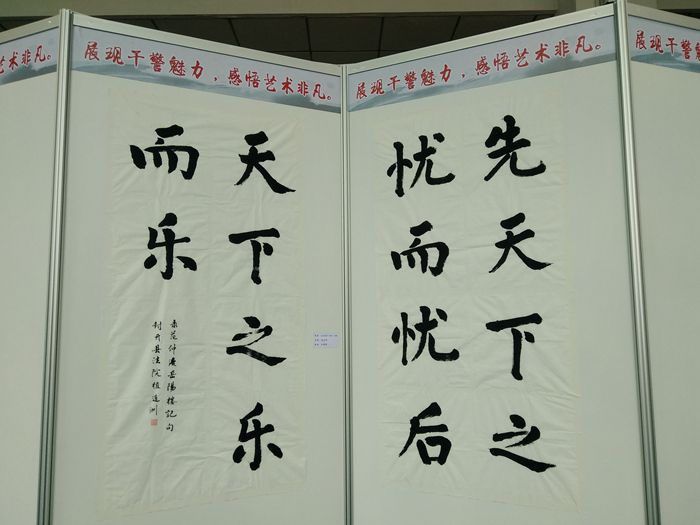 艺术非凡。
展现干警魅力，感悟艺术非凡。
展现干警魅力，感悟艺术非凡。
展现干警魅
先天下之
忧而忧后
天下之乐
而乐
录范仲淹岳阳楼记句
封开县法院植